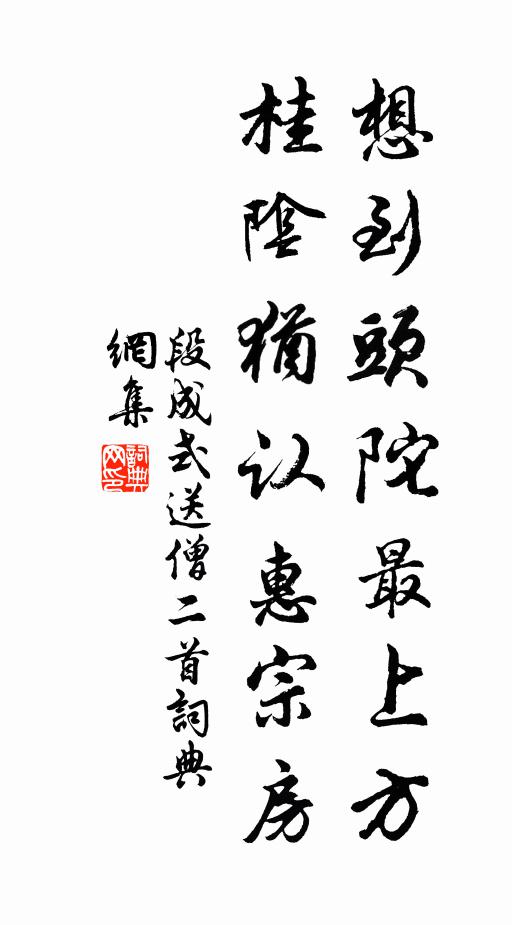 想到頭陀最上方
桂陰猶认惠宗房
段成式送僧二首詞典
網集
詞典
网印